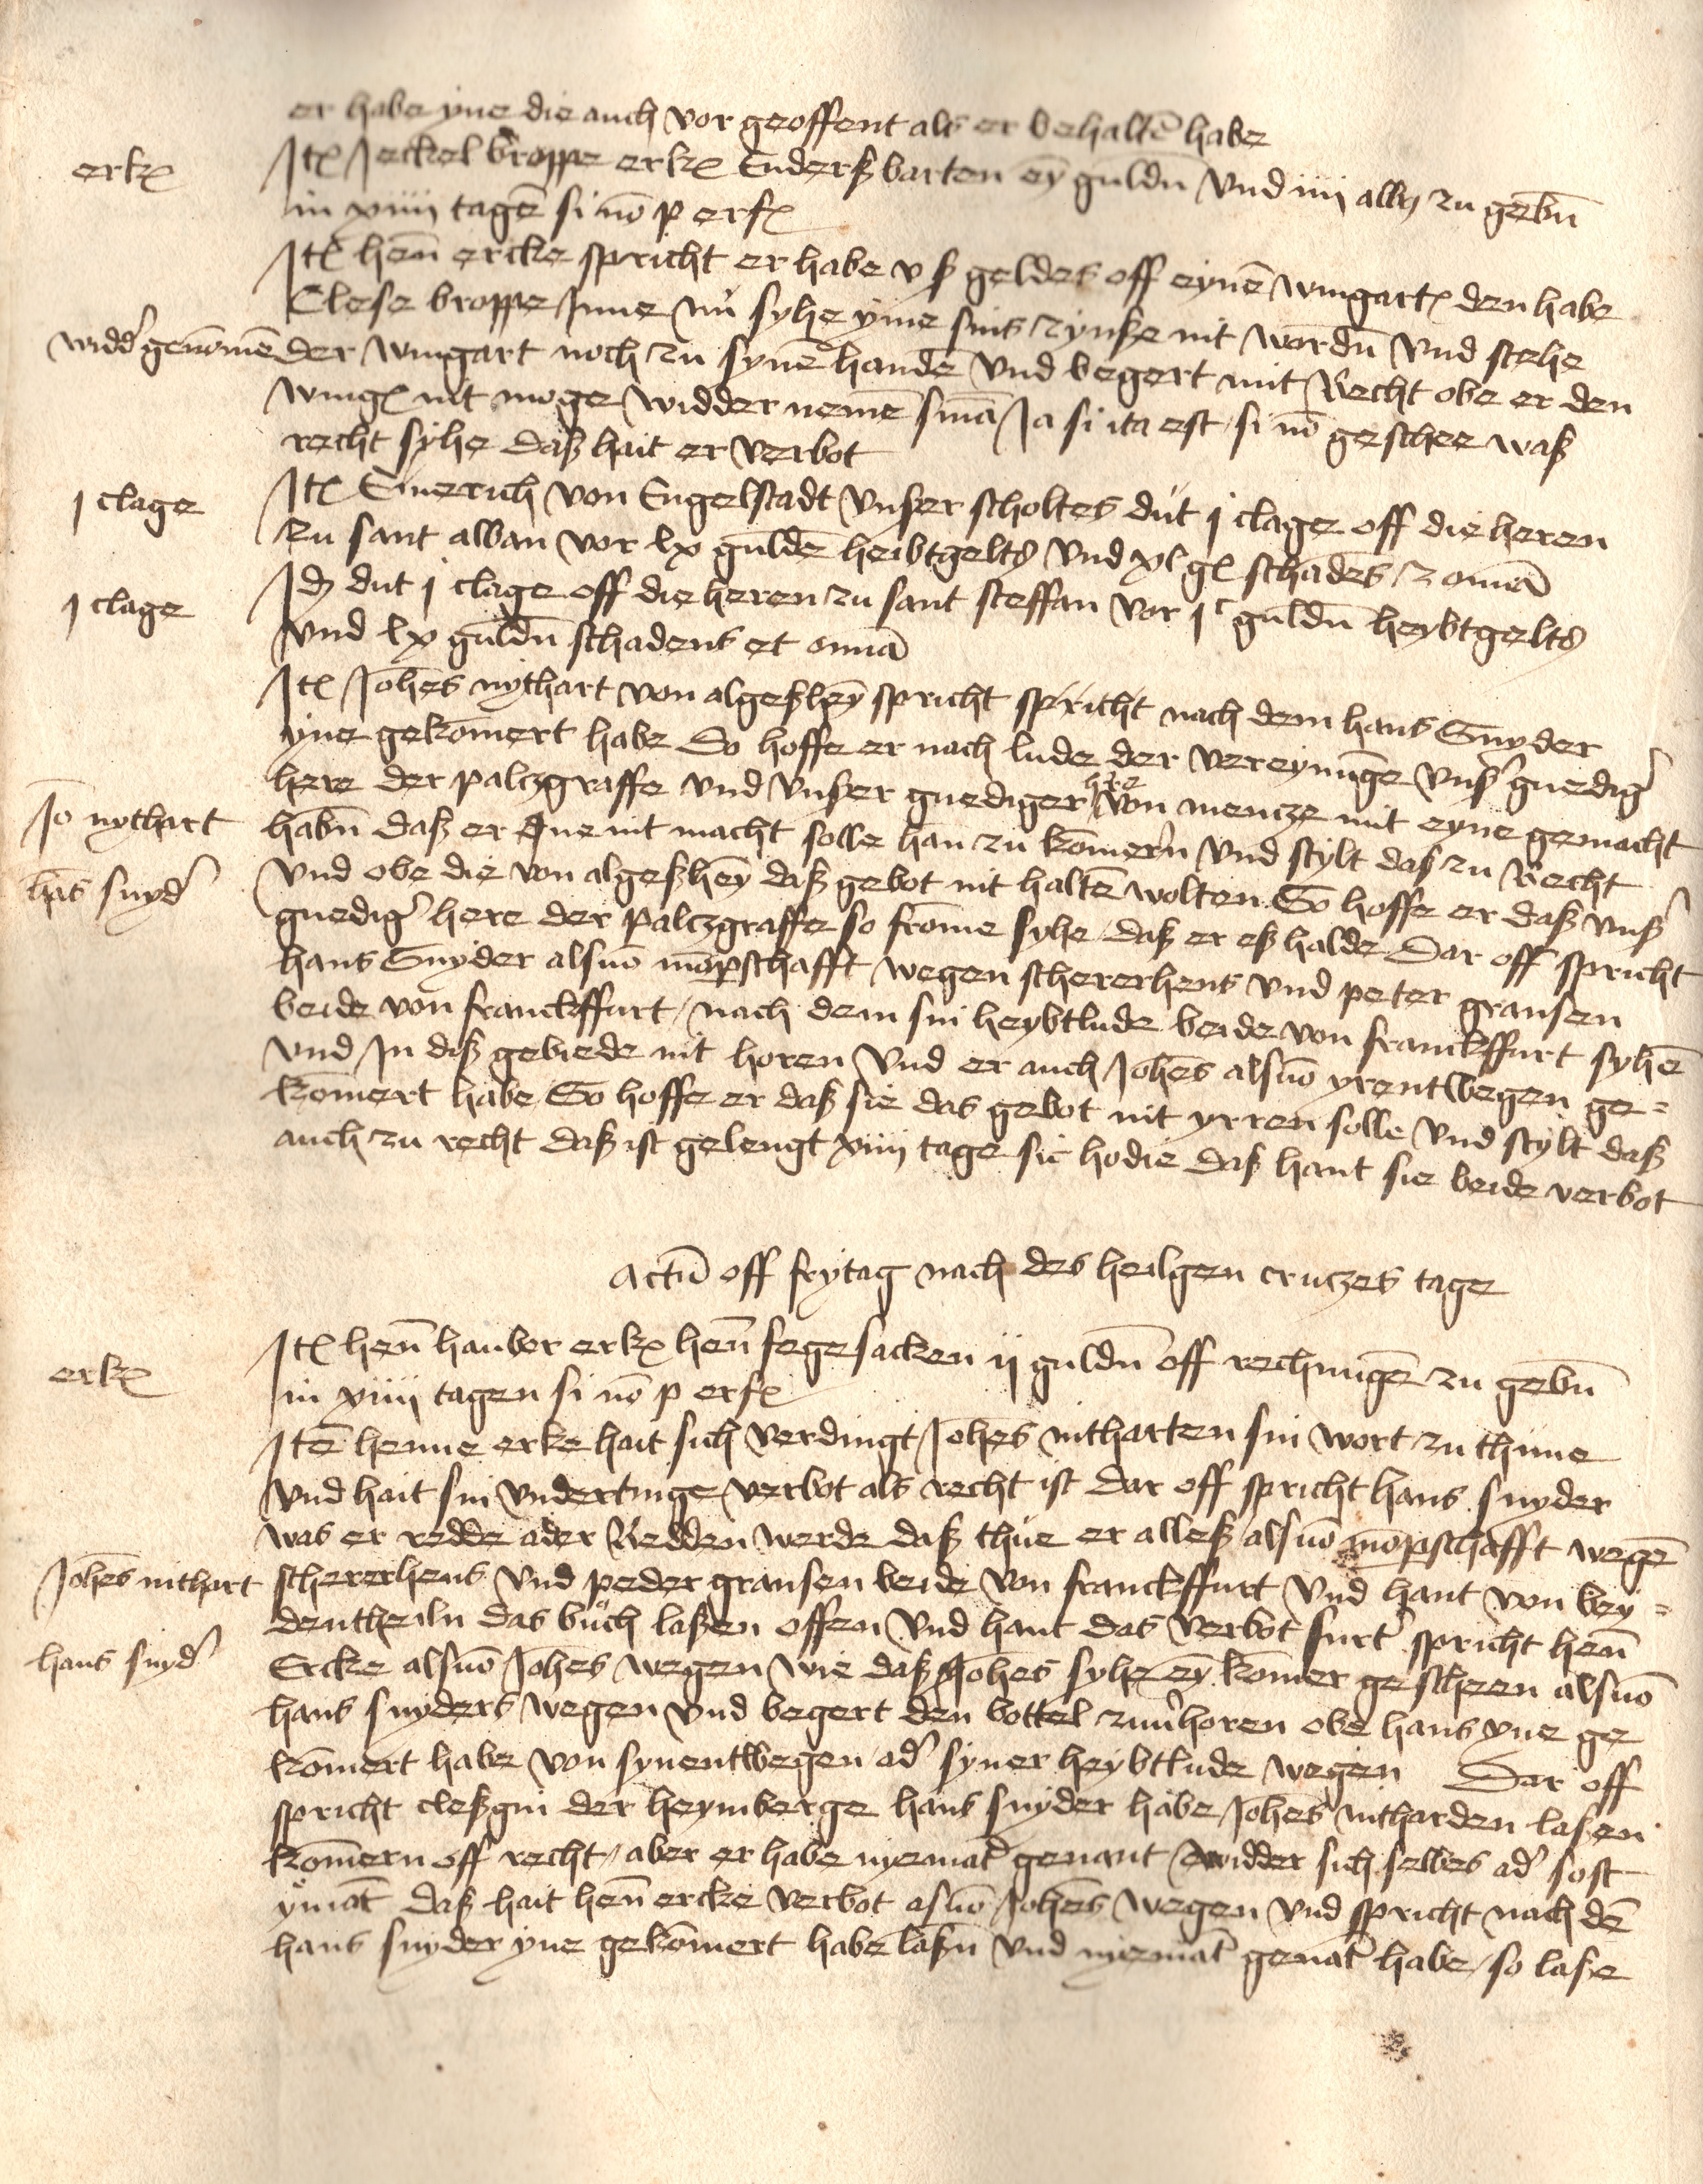 er habe yne die auch vor geoffent als er behaltē habe
erkꝫ
Itꝫ Jeckel broppe erkꝫ Enderß barten eȳ guldn̄ vnd iiij albꝫ zu gebn̄
in xiiij tagē si nō p erfꝫ
Itꝫ hen̄ ercke spricht er habe v ß geldes off eynē wingartꝫ den habe
Clese broppe Inne nů syhe yme sins zynße nit wordn̄ vnd stehe
widd' genōmē
der wingart noch zu synē handē vnd begert mit Recht obe er den
wingꝫ nit moge widder nemē sniā Ja si ita est si nō geschee waß
recht syhe daß hait er verbot
j clage
Itꝫ Emerich von Engelstadt vnser scholtes důt j clage off die heren
zu sant alban vor lx guldē heibtgeltꝭ vnd xl gꝫ schadēs z omīa
j clage
Idꝫ dut j clage off die heren zu sant steffan vor jᶜ guldn̄ heybtgeltꝭ
vnd lx guldn̄ schadens et omīa
Itꝫ Joh̄es nythart von algeßheȳ spricht spricht nach dem hans Snyder
yne gekōmert habe So hoffe er nach lude der vereynūge vnß' gnedig'
here der palczgraffe vnd vnser gnediger h're von mencze mit eyne gemacht
Jo nythart
habn̄ daß er Ine nit macht solle han zu kōmern vnd stylt daß zu Recht
hās snyd'
vnd obe die von algeßhēy daß gebot nit haltē wolten So hoffe er daß vnß'
gnedig' here der palczgraffe so frōme syhe daß er eß halde Dar off spricht
hans Snyder alsnō mōpschafft wegen schererhens vnd peter gransen
beide von franckffurt / nach dem sin heybtlude beide von franckffurt syhē
vnd In diß gebiede nit horen vnd er auch Joh̄es alsnō yrentwegen ge=
kōmert habe So hoffe er daß sie das gebot nit yrren solle vnd stylt daß
auch zu recht daß ist gelengt xiiij tage sic hodie daß hant sie beide verbot
Actū off frytag nach des heilgen cruczes tage
erkꝫ
Itꝫ hen̄ hanbor erkꝫ hen̄ fegesacken ij guldn̄ off rechnūgē zu gebn̄
in xiiij tagen si nō p erfꝫ
Itē henne erke hait sich verdingt Joh̄es nitharten sin wort zu thune
vnd hait sin vndertinge verbot als recht ist Dar off spricht hans snyder
was er redde ader Redden werde daß thue er alleß alsnō mōpschafft wegē
Joh̄es nithart
schererhens vnd peder gransen beide von franckffurt vnd hant von bey=
dentheiln das bůch laßen offen vnd hant das verbot furt' spricht hen̄
hans snyd'
Ercke alsnō Joh̄es wegen wie daß Joh̄es syhe eȳ kōmer gescheen alsnō
hans snyders wegen vnd begert den bottel zuuůhoren obe hans yne ge
kōmert habe von synentwegen ad' syner heybtlude wegen Dar off
spricht cleßgin der heymberge hans snyder habe Joh̄es nitharden laßen
kōmern off recht / aber er habe nyemāt genant widder sich selbes ad' sost
ymāt daß hait hen̄ ercke verbot asnō Joh̄es wegen vnd spricht nach dē
hans snyder yne gekōmert habe laßn̄ vnd nyemāt genāt habe / so laße